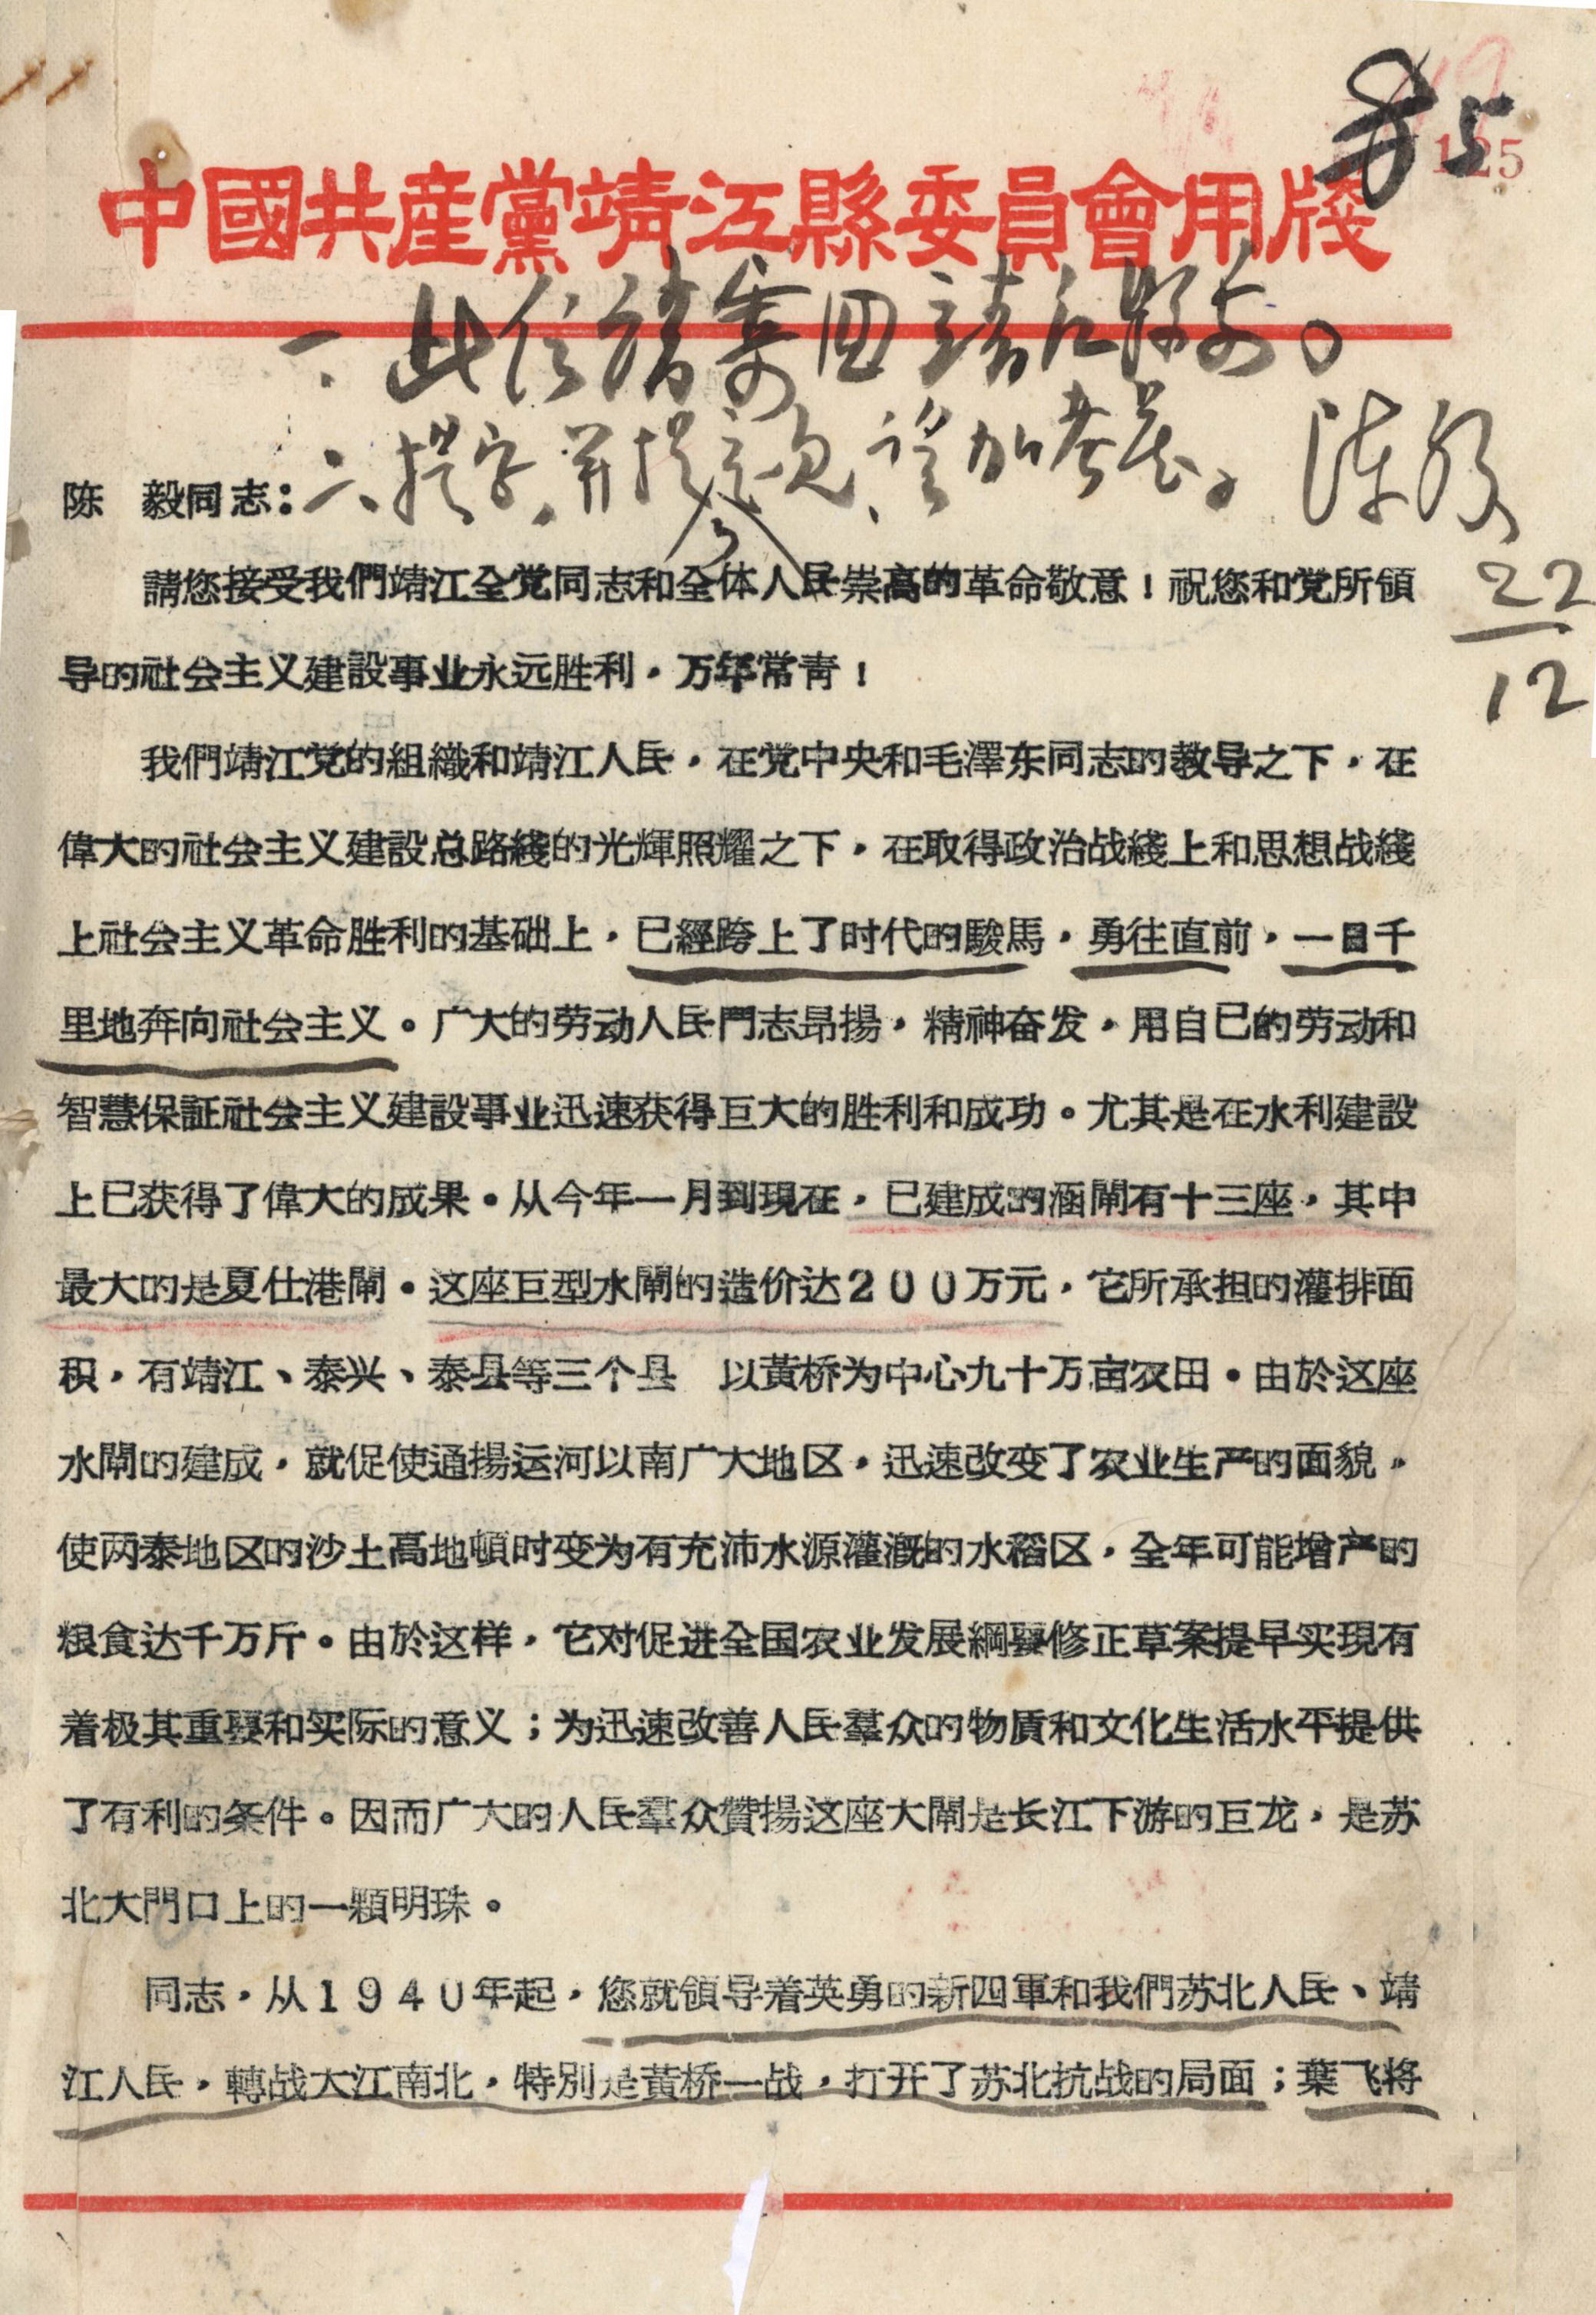 85
125
中國共産黨靖江縣委員會用牋
一、此信請寄回靖江縣委。
二、提字，并提意见，请加考虑。 陈毅
22
12
陈 毅同志：
請您接受我們靖江全党同志和全体人民崇高的革命敬意！祝您和党所領
导的社会主义建設事业永远胜利，万年常青！
我們靖江党的組織和靖江人民，在党中央和毛澤东同志的教导之下，在
偉大的社会主义建設总路綫的光輝照耀之下，在取得政治战綫上和思想战綫
上社会主义革命胜利的基础上，已經跨上了时代的駿馬，勇往直前，一日千
里地奔向社会主义。广大的劳动人民鬥志昂揚，精神奋发，用自已的劳动和
智慧保証社会主义建設事业迅速获得巨大的胜利和成功。尤其是在水利建設
上已获得了偉大的成果。从今年一月到現在，已建成的涵閘有十三座，其中
最大的是夏仕港閘。这座巨型水閘的造价达200万元，它所承担的灌排面
积，有靖江、泰兴、泰县等三个县 以黃桥为中心九十万亩农田。由於这座
水閘的建成，就促使通揚运河以南广大地区，迅速改变了农业生产的面貌，
使两泰地区的沙土高地頓时变为有充沛水源灌溉的水稻区，全年可能增产的
粮食达千万斤。由於这样，它对促进全国农业发展綱要修正草案提早实現有
着极其重要和实际的意义；为迅速改善人民羣众的物質和文化生活水平提供
了有利的条件。因而广大的人民羣众贊揚这座大閘是长江下游的巨龙，是苏
北大門口上的一顆明珠。
同志，从1940年起，您就領导着英勇的新四軍和我們苏北人民、靖
江人民，轉战大江南北，特別是黃桥一战，打开了苏北抗战的局面；葉飞将